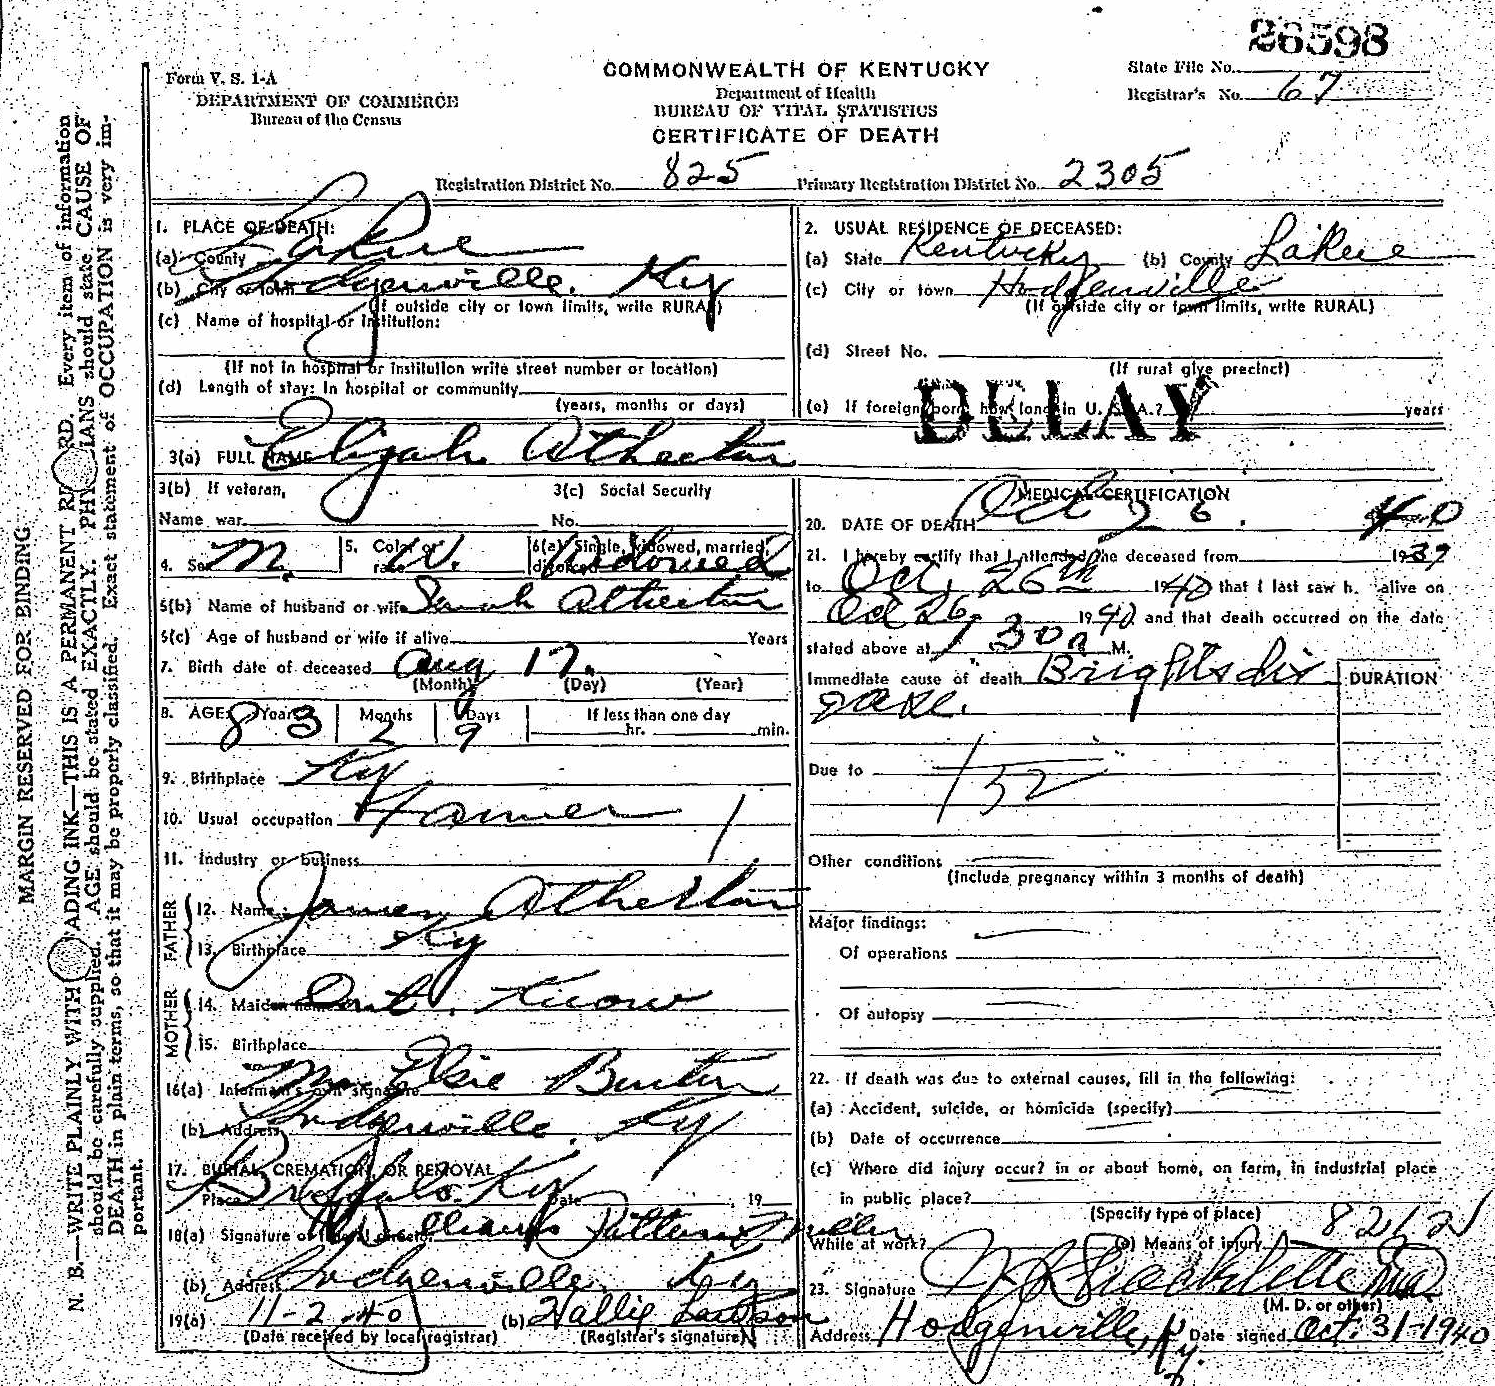 26598
Form V. S. 1-A
DEPARTMENT OF COMMERCE
Bureau of the Census
COMMONWEALTH OF KENTUCKY
Department of Health
BUREAU OF VITAL STATISTICS
CERTIFICATE OF DEATH
State File No.
Registrar's No. 67
Registration District No. 825 Primary Registration District No. 2305
MARGIN RESERVED FOR BINDING
N. B.—WRITE PLAINLY WITH ADING INK—THIS IS A PERMANENT RE RD. Every item of information
should be carefully supplied. AGE should be stated EXACTLY. PHY IANS should state CAUSE OF
DEATH in plain terms, so that it may be properly classified. Exact statement of OCCUPATION is very im-
portant.
1. PLACE OF DEATH:
(a) County LaRue
(b) City or town Hodgenville. Ky
(If outside city or town limits, write RURAL)
(c) Name of hospital or institution:
(If not in hospital or institution write street number or location)
(d) Length of stay: In hospital or community
(years, months or days)
2. USUAL RESIDENCE OF DECEASED:
(a) State Kentucky (b) County LaRue
(c) City or town Hodgenville
(If outside city or town limits, write RURAL)
(d) Street No.
(If rural give precinct)
(e) If foreign born, how long in U. S. A.? years
DELAY
3(a) FULL NAME Elijah Atherton
3(b) If veteran, 3(c) Social Security
Name war No.
4. Sex M. 5. Color or race W. 6(a) Single, widowed, married, divorced Widowed
5(b) Name of husband or wife Sarah Atherton
5(c) Age of husband or wife if alive Years
7. Birth date of deceased Aug 17.
(Month) (Day) (Year)
8. AGE 83 Years 2 Months 9 Days If less than one day
hr. min.
9. Birthplace Ky
10. Usual occupation Farmer 1
11. Industry or business
FATHER
12. Name James Atherton
13. Birthplace Ky
MOTHER
14. Maiden name Dont. Know
15. Birthplace
16(a) Informant's own signature Elsie
(b) Address Hodgenville, Ky
17. BURIAL, CREMATION, OR REMOVAL
Place Buffalo. Ky Date 19
18(a) Signature of funeral director Williams
(b) Address Hodgenville, Ky
19(a) 11-2-40 (b) Hallie Lawson
(Date received by local registrar) (Registrar's signature)
MEDICAL CERTIFICATION
20. DATE OF DEATH Oct 26. 40
21. I hereby certify that I attended the deceased from 1939
to Oct. 26th 1940 that I last saw h. alive on
Oct 26, 1940 and that death occurred on the date
stated above at 1 30 a M.
Immediate cause of death Brights dis
ease.
DURATION
Due to 132
Other conditions
(Include pregnancy within 3 months of death)
Major findings:
Of operations
Of autopsy
22. If death was due to external causes, fill in the following:
(a) Accident, suicide, or homicide (specify)
(b) Date of occurrence
(c) Where did injury occur? in or about home, on farm, in industrial place
in public place?
(Specify type of place)
While at work? (e) Means of injury
23. Signature
(M. D. or other)
Address Hodgenville, Ky. Date signed Oct. 31-1940